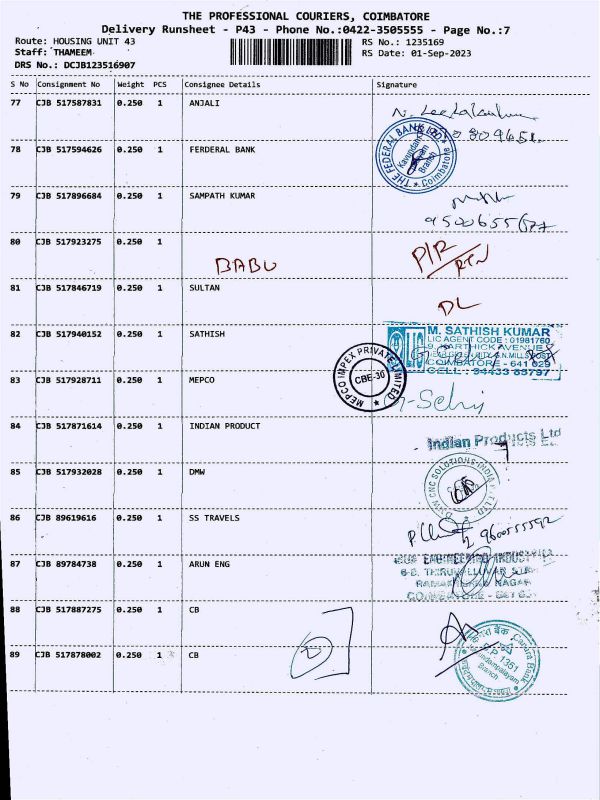 THE PROFESSIONAL COURIERS, COIMBATORE
Delivery Runsheet - P43 - Phone No.:0422-3505555 - Page No.:7
Route: HOUSING UNIT 43 RS No.: 1235169
Staff: THAMEEM RS Date: 01-Sep-2023
DRS No.: DCJB123516907
S No Consignment No Weight PCS Consignee Details Signature
77 CJB 517587831 0.250 1 ANJALI
78 CJB 517594626 0.250 1 FERDERAL BANK
THE FEDERAL BANK LTD Coimbatore
Branch
79 CJB 517896684 0.250 1 SAMPATH KUMAR
80 CJB 517923275 0.250 1
BABU P/R
RTN
81 CJB 517846719 0.250 1 SULTAN
DL
82 CJB 517940152 0.250 1 SATHISH
M. SATHISH KUMAR
LIC AGENT CODE : 01981760
COIMBATORE - 641 029
CELL : 94433 65797
83 CJB 517928711 0.250 1 MEPCO
MEPCO IMPEX PRIVATE LIMITED
CBE-30
84 CJB 517871614 0.250 1 INDIAN PRODUCT
Indian Products Ltd
85 CJB 517932028 0.250 1 DMW
DMW CNC SOLUTIONS INDIA P LTD
86 CJB 89619616 0.250 1 SS TRAVELS
9600555592
87 CJB 89784738 0.250 1 ARUN ENG
ENGINEERING
NAGAR
88 CJB 517887275 0.250 1 CB
D
89 CJB 517878002 0.250 1 CB
Canara Bank
D.P 1361
Branch